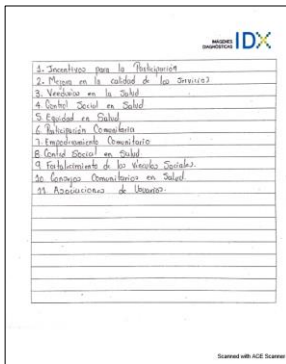 IMÁGENES
DIAGNÓSTICAS IDX
1. Incentivos para la Participación
2. Mejora en la calidad de los Servicios
3. Veedurias en la Salud
4 Control Social en Salud
5 Equidad en Salud
6 Participación Comunitaria
7 Empoderamiento Comunitario
8 Control Social en Salud
9 Fortalecimiento de los Vínculos Sociales.
10 Consejos Comunitarios en Salud
11 Asociaciones de Usuarios.
Scanned with ACE Scanner